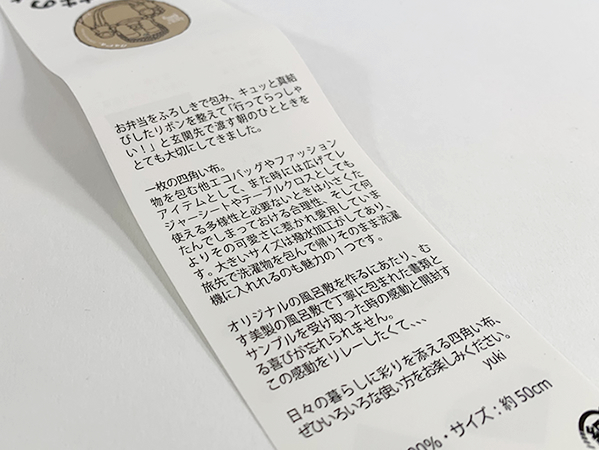 お弁当をふろしきで包み、キュッと真結
びしたリボンを整えて「行ってらっしゃ
い！」と玄関先で渡す朝のひとときを
とても大切にしてきました。
一枚の四角い布。
物を包む他エコバッグやファッション
アイテムとして、また時には広げてレ
ジャーシートやテーブルクロスとしても
使える多様性と必要ないときは小さくた
たんでしまっておける合理性、そして何
よりその可愛さに惹かれ愛用していま
す。大きいサイズは撥水加工がしてあり、
旅先で洗濯物を包んで帰りそのまま洗濯
機に入れれるのも魅力の１つです。
オリジナルの風呂敷を作るにあたり、む
す美製の風呂敷で丁寧に包まれた書類と
サンプルを受け取った時の感動と開封す
る喜びが忘れられません。
この感動をリレーしたくて、、、
日々の暮らしに彩りを添える四角い布、
ぜひいろいろな使い方をお楽しみください。
yuki
00%・サイズ：約50cm